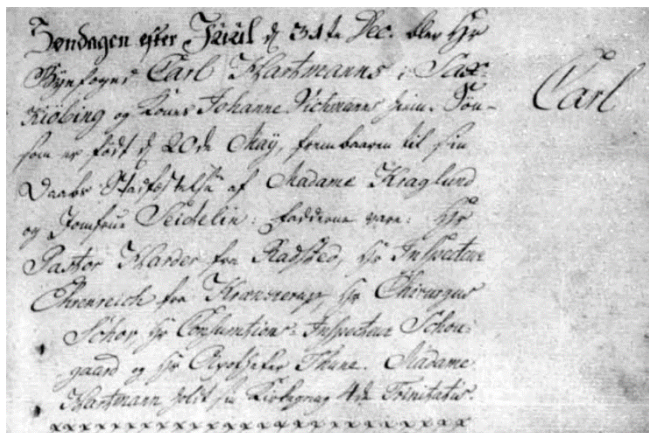 Søndagen efter Juul d 31te Dec. blev Hr
Byefoged Carl Hartmanns i Sax-
Kiøbing og Kones Johanne Vichmanns Søn
Carl
som er født d 20de May, frembaaren til sin
Daabs Stadfæstelse af Madame Kraglund
og Jomfrue Seidelin: fadderne vare: Hr
Pastor Harder fra Radsted, Hr Inspecteur
Ehrenreich fra Krænnerup, Hr Chirurgus
Schor, Hr Consumtions-Inspecteur Schou-
gaard og Hr Apotheker Thune. Madame
Hartmann holdt sin Kirkegang 4de Trinitatis.